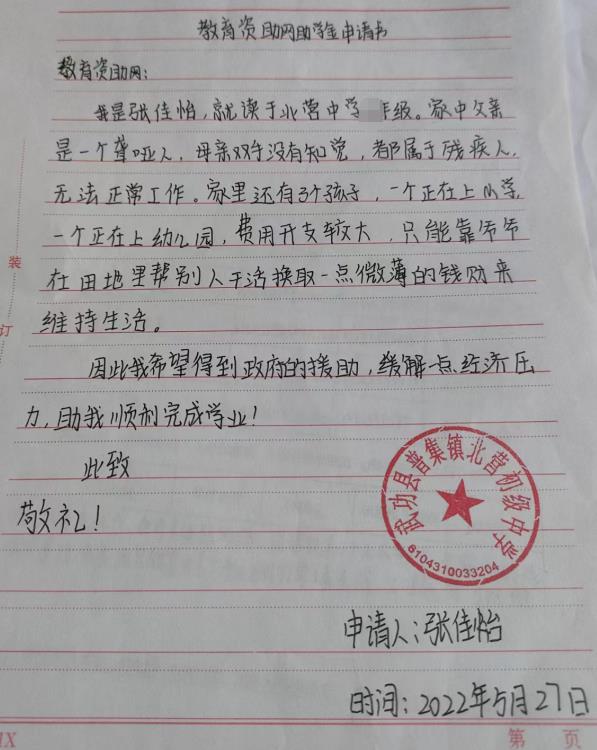 教育资助网助学金申请书
教育资助网:
我是张佳怡,就读于北营中学 年级。家中父亲
是一个聋哑人,母亲双手没有知觉,都属于残疾人,
无法正常工作。家里还有3个孩子,一个正在上小学,
一个正在上幼儿园,费用开支较大,只能靠爷爷
在田地里帮别人干活换取一点微薄的钱财来
维持生活。
因此我希望得到政府的援助,缓解一点经济压
力,助我顺利完成学业!
此致
敬礼!
武功县普集镇北营初级中学
6104310033204
申请人:张佳怡
时间:2022年5月27日
装
订
第 页